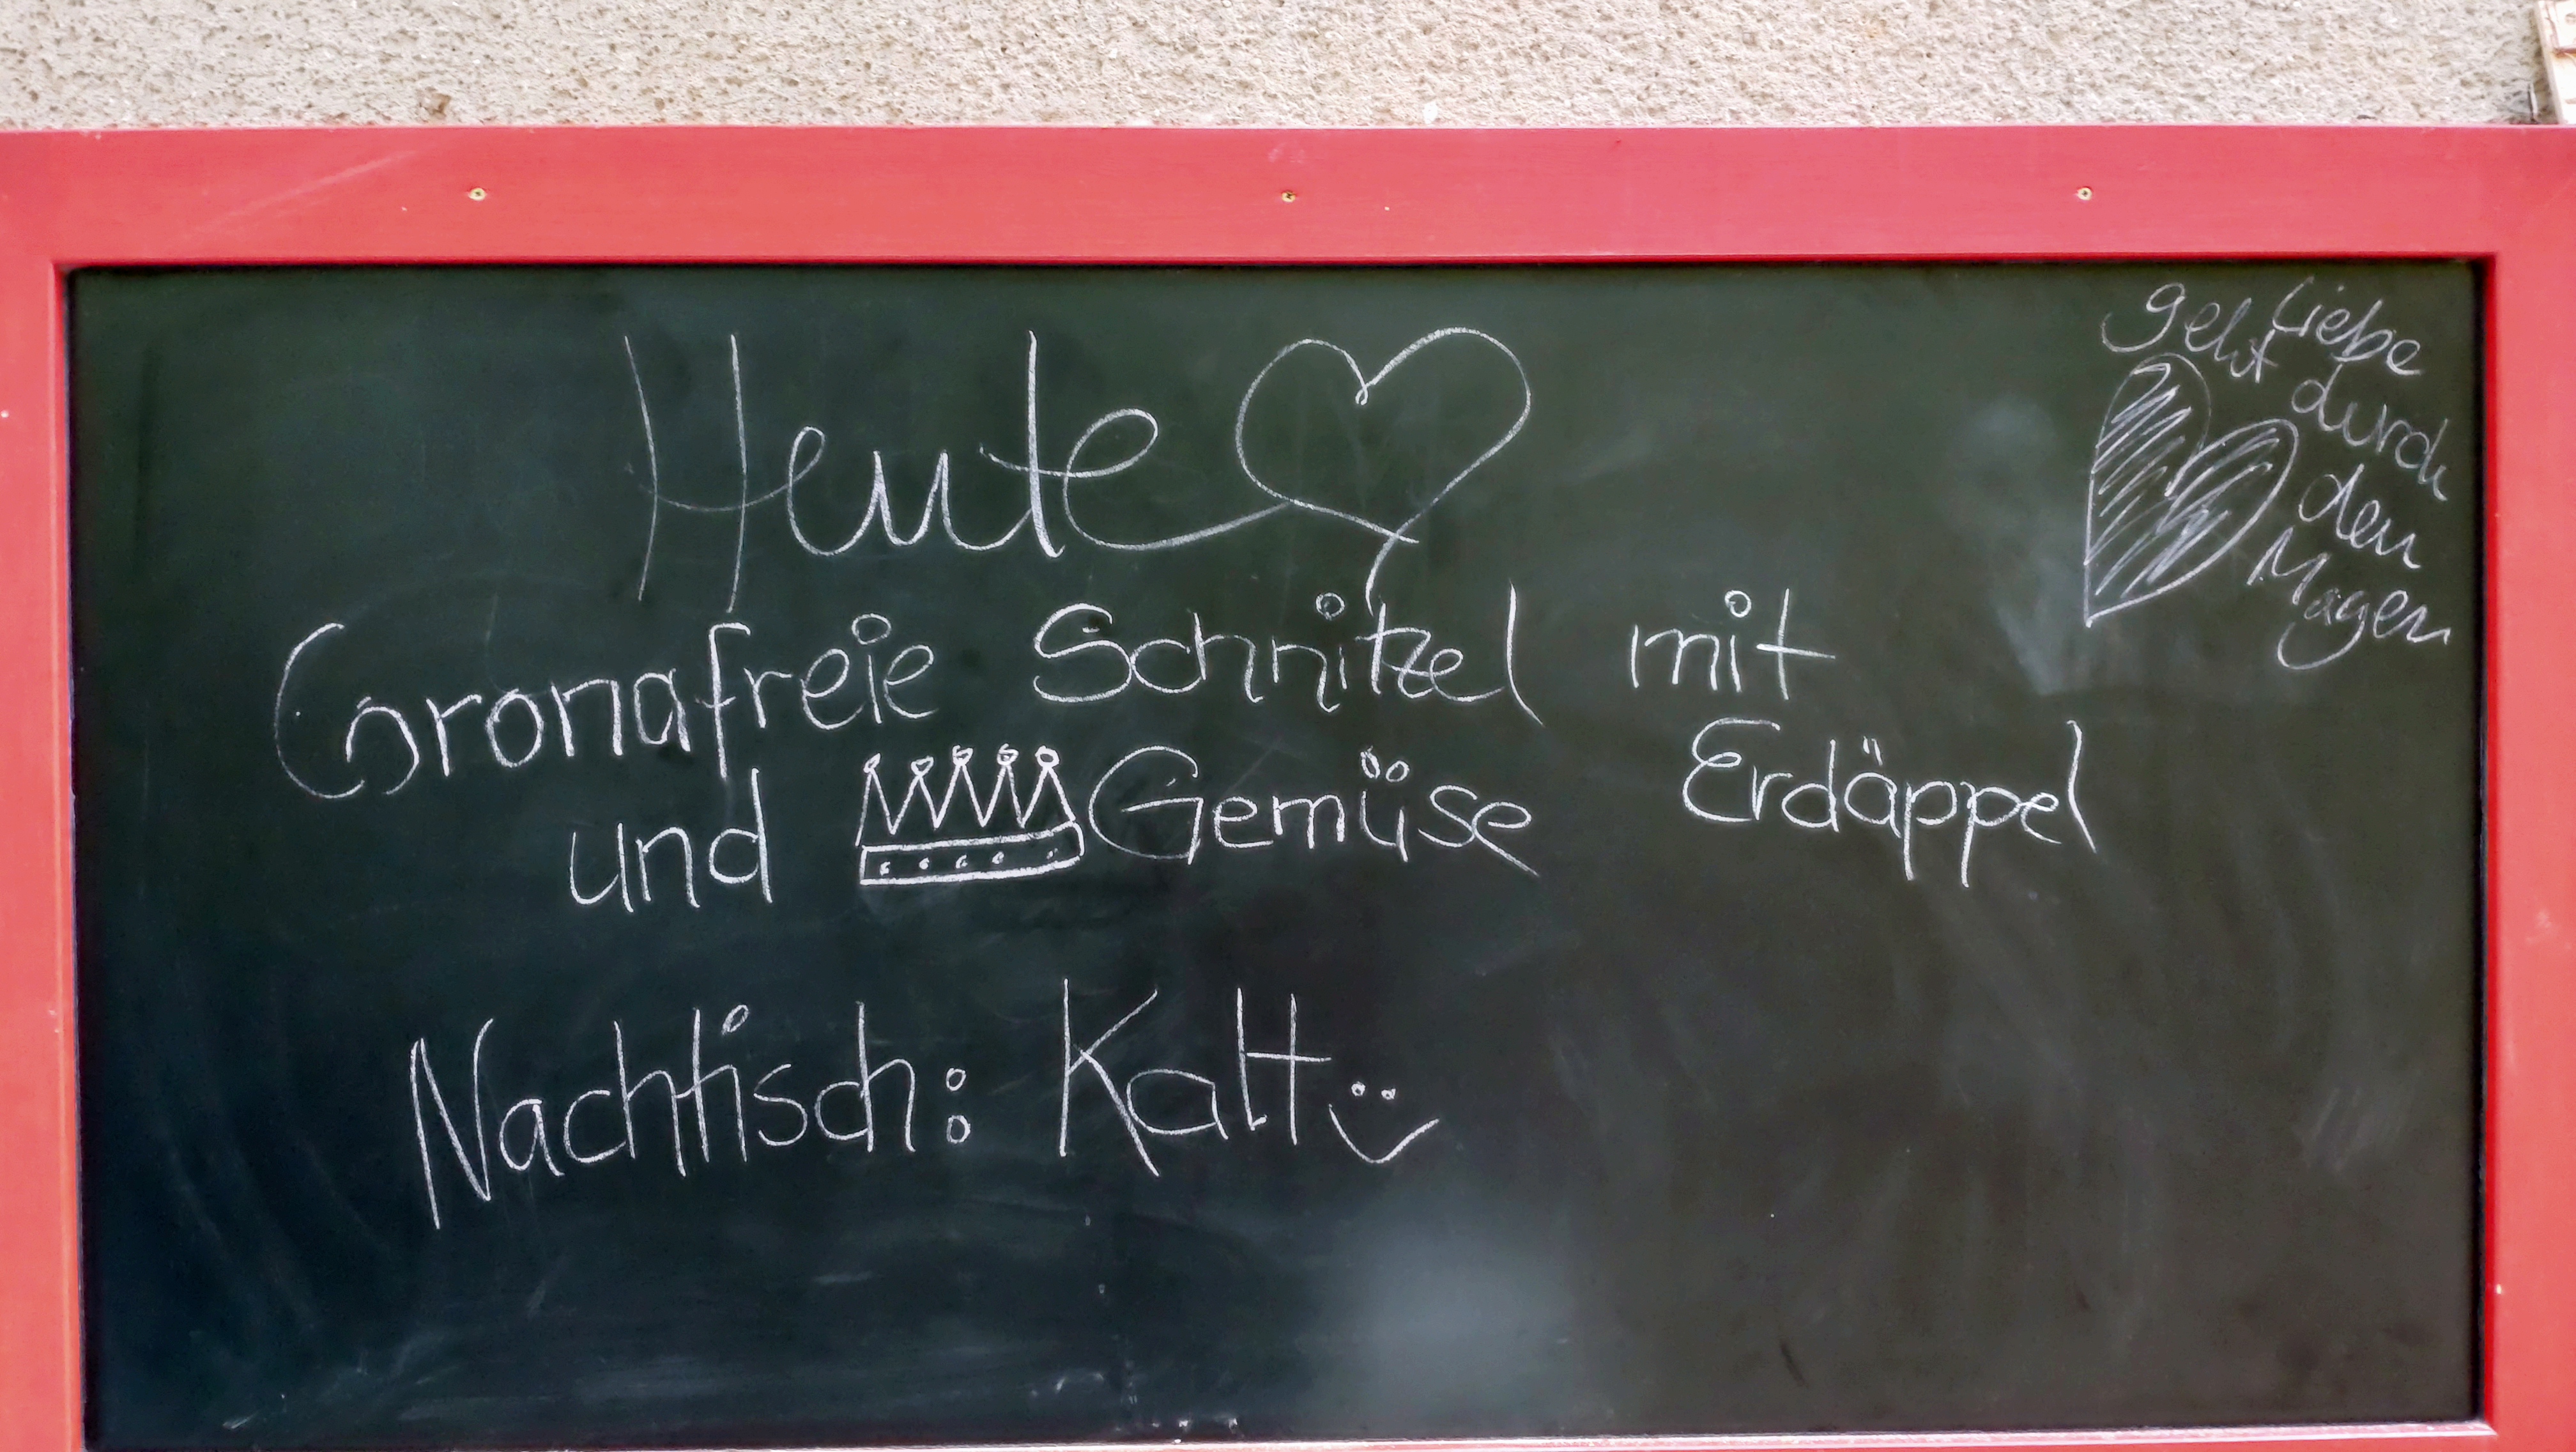 Heute
Coronafreie Schnitzel mit
Erdäppel
und Gemüse
Nachtisch: Kalt
Liebe
geht durch
den
Magen